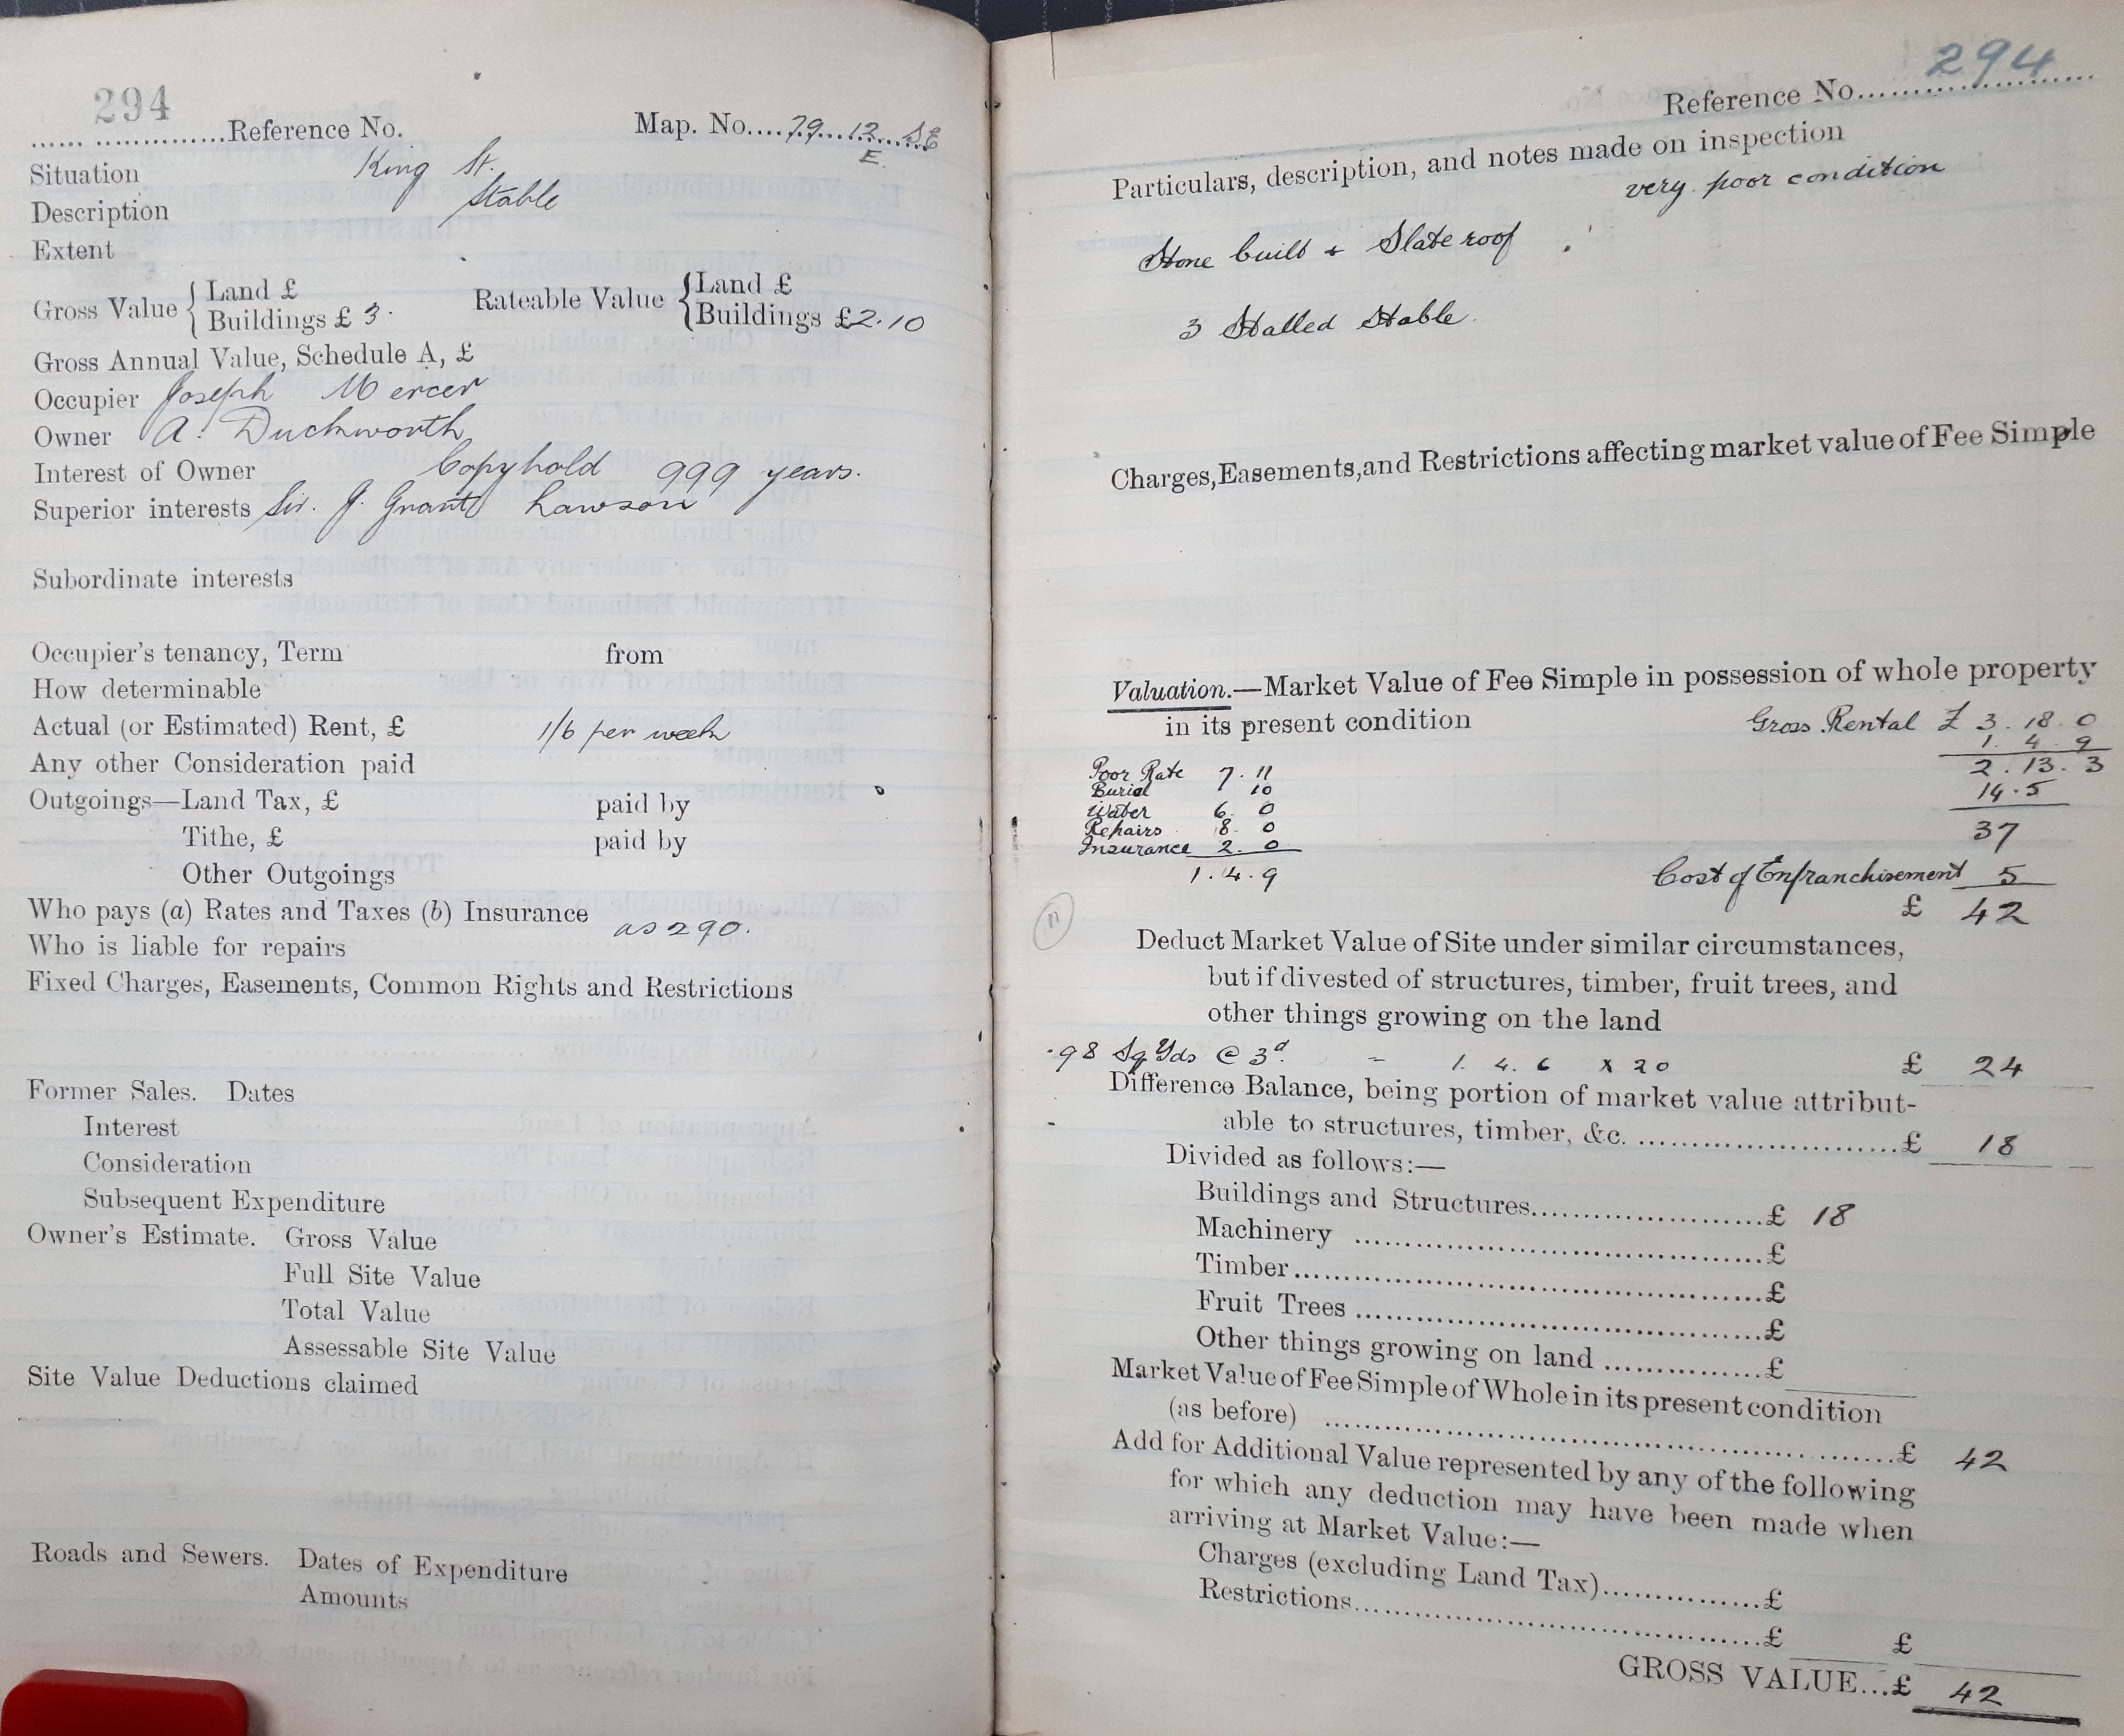 294
...... ...............Reference No. Map. No....79...12...SE
E.
Situation King St.
Description Stable
Extent
Gross Value { Land £
Buildings £ 3. Rateable Value { Land £
Buildings £2.10
Gross Annual Value, Schedule A, £
Occupier Joseph Mercer
Owner A. Duckworth
Interest of Owner Copyhold 999 years.
Superior interests Sir. J. Grant Lawson
Subordinate interests
Occupier's tenancy, Term from
How determinable
Actual (or Estimated) Rent, £ 1/6 per week
Any other Consideration paid
Outgoings—Land Tax, £ paid by
Tithe, £ paid by
Other Outgoings
Who pays (a) Rates and Taxes (b) Insurance as 290.
Who is liable for repairs
Fixed Charges, Easements, Common Rights and Restrictions
Former Sales. Dates
Interest
Consideration
Subsequent Expenditure
Owner's Estimate. Gross Value
Full Site Value
Total Value
Assessable Site Value
Site Value Deductions claimed
Roads and Sewers. Dates of Expenditure
Amounts
294
Reference No....................
Particulars, description, and notes made on inspection
very poor condition
Stone built + Slate roof
3 Stalled Stable.
Charges, Easements, and Restrictions affecting market value of Fee Simple
Valuation.—Market Value of Fee Simple in possession of whole property
in its present condition Gross Rental £ 3. 18. 0
1. 4. 9
Poor Rate 7. 11 2. 13. 3
Burial 10 14.5
Water 6. 0
Repairs 8. 0 37
Insurance 2. 0
1. 4. 9 Cost of Enfranchisement 5
£ 42
Deduct Market Value of Site under similar circumstances,
but if divested of structures, timber, fruit trees, and
other things growing on the land
98 Sq Yds @ 3d. = 1. 4. 6 x 20 £ 24
Difference Balance, being portion of market value attribut-
able to structures, timber, &c. ..............................£ 18
Divided as follows:—
Buildings and Structures..........................£ 18
Machinery ..............................................£
Timber....................................................£
Fruit Trees ..............................................£
Other things growing on land ................£
Market Value of Fee Simple of Whole in its present condition
(as before) ..................................................................£ 42
Add for Additional Value represented by any of the following
for which any deduction may have been made when
arriving at Market Value:—
Charges (excluding Land Tax)..................£
Restrictions..............................................£ £
GROSS VALUE...£ 42